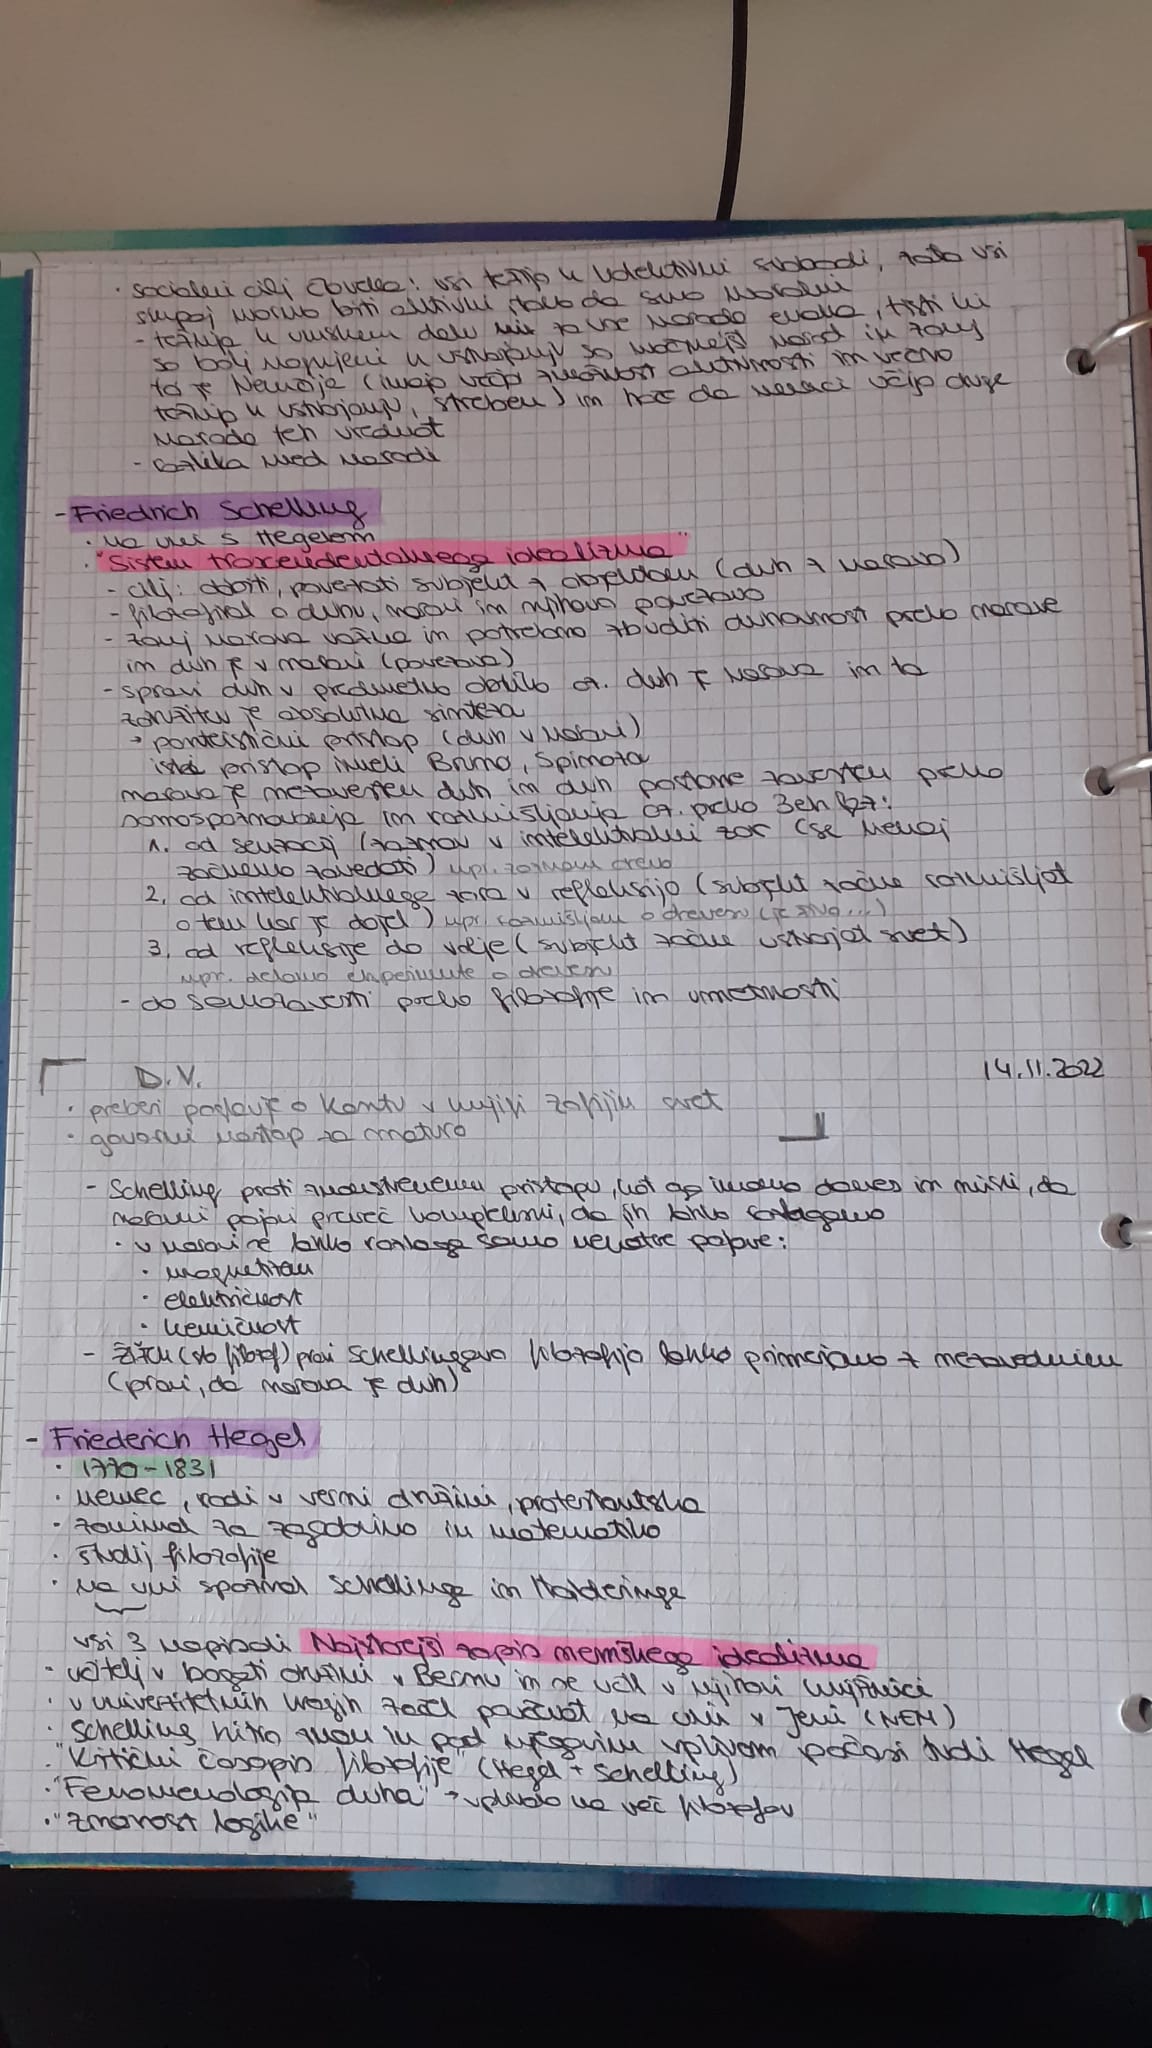 · socialni cilj človeka: vsi težijo k kolektivni svobodi, zato vsi
skupaj moramo biti aktivni, tako da smo moralni
- težnja k umskem delu za vse narode enaka, tisti ki
so bolj nagnjeni k ustvarjanju so močnejši narod in zanj
to je Nemčija (imajo večjo zmožnost aktivnosti in večno
težnjo k ustvarjanju, streben) in hoče da nemci učijo druge
narode teh vrednot
- razlika med narodi
- Friedrich Schelling
· na uni s Heglom
· "Sistem trascendentalnega idealizma"
- cilj: dobiti, povezati subjekt z objektom (duh z naravo)
- filozofiral o duhu, naravi in njihovo povezavo
- zanj narava važna in potrebno zbuditi duhovnost preko narave
in duh je v naravi (povezava)
- spravi duh v predmetno obliko oz. duh je narava in ta
združitev je absolutna sinteza
→ panteistični pristop (duh v naravi)
isti pristop imeli Bruno, Spinoza
narava je nezavesten duh in duh postane zavesten preko
samospoznavanja in razmišljanja oz. preko 3eh faz:
1. od senzacij (zaznav v intelektualni zor (se nečesa
začnemo zavedati) npr. zaznamo drevo
2. od intelektualnega zora v refleksijo (subjekt začne razmišljat
o tem kar je dojel) npr. razmišljam o drevesu (je živo...)
3. od refleksije do volje (subjekt začne ustvarjat svet)
npr. delamo eksperimente o drevesu
- do samozavesti preko filozofije in umetnosti
D.V. 14.11.2022
· preberi poglavje o Kantu v knjigi Zofijin svet
· govorni nastop za maturo
- Schelling proti znanstvenemu pristopu, kot ga imamo danes in misli, da
naravni pojavi preveč kompleksni, da jih lahko razlagamo
· v naravi se lahko razlaga samo nekatere pojave:
· magnetizem
· električnost
· kemičnost
- Žižek (slo filozof) pravi Schellingovo filozofijo lahko primerjamo z nezavednim
(pravi, da narava je duh)
- Friederich Hegel
· 1770-1831
· nemec, rodi v verni družini, protestantska
· zanimal za zgodovino in matematiko
· študij filozofije
· na uni spoznal Schellinga in Holderinga
vsi 3 napisali Najstarejši zapis nemškega idealizma
· učitelj v bogati družini v Bernu in se učil v njihovi knjižnici
· v univerzitetnih krogih začel poučevat na uni v Jeni (NEM)
· Schelling hitro znan in pod njegovim vplivom počasi tudi Hegel
· "Kritični časopis filozofije" (Hegel + Schelling)
· "Fenomenologija duha" → vplivalo na več filozofov
· "Znanost logike"